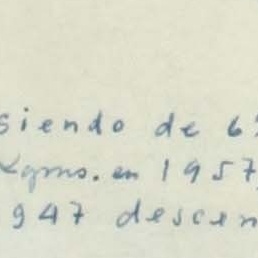 siendo de 6
Kgms. en 1957,
947 descen